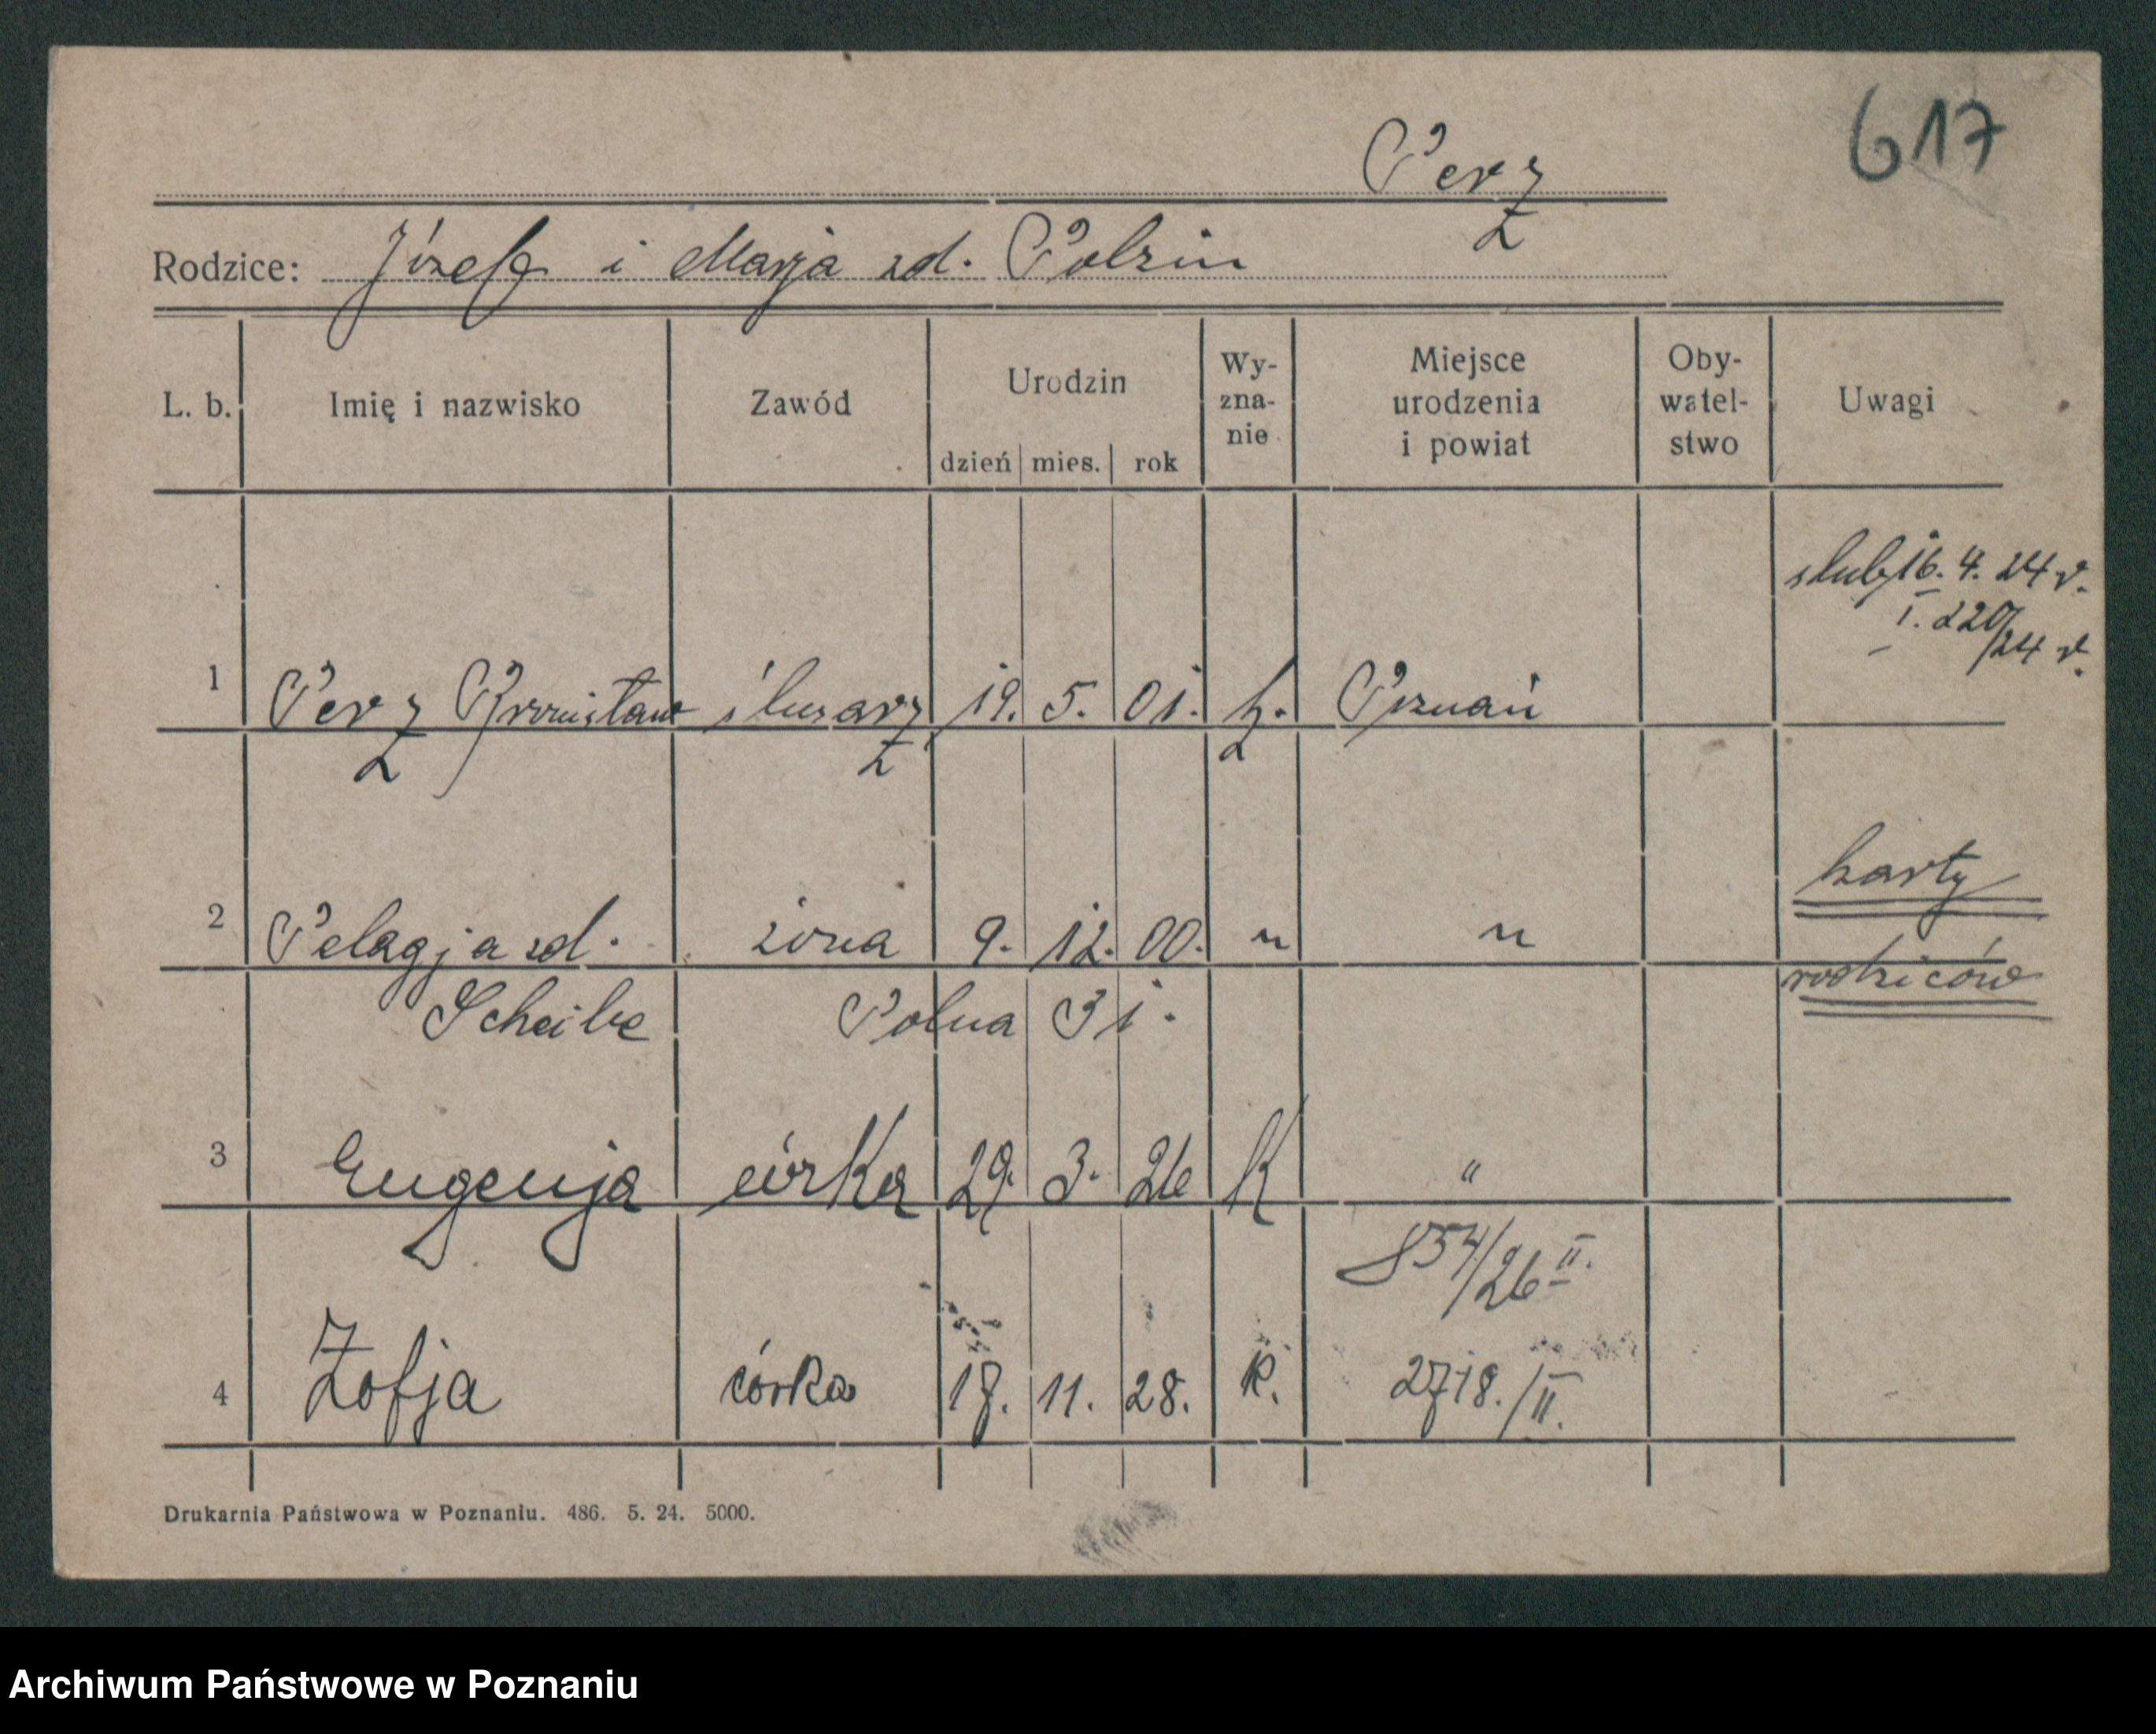 617
Perz
Rodzice: Józef i Marja zd. Polzin
L. b. Imię i nazwisko Zawód Urodzin dzień mies. rok Wy-zna-nie Miejsce urodzenia i powiat Oby-watel-stwo Uwagi
ślub 16. 4. 24 r.
I. 220/24 r.
1 Perz Bronisław ślusarz 19. 5. 01. k. Poznań
karty
2 Pelagja zd. żona 9. 12. 00. " "
rodziców
Scheibe Polna 31.
3 Eugenja córka 29. 3. 26 K "
854/26 II.
4 Zofja córka 17. 11. 28. k. 2718./II.
Drukarnia Państwowa w Poznaniu. 486. 5. 24. 5000.
Archiwum Państwowe w Poznaniu